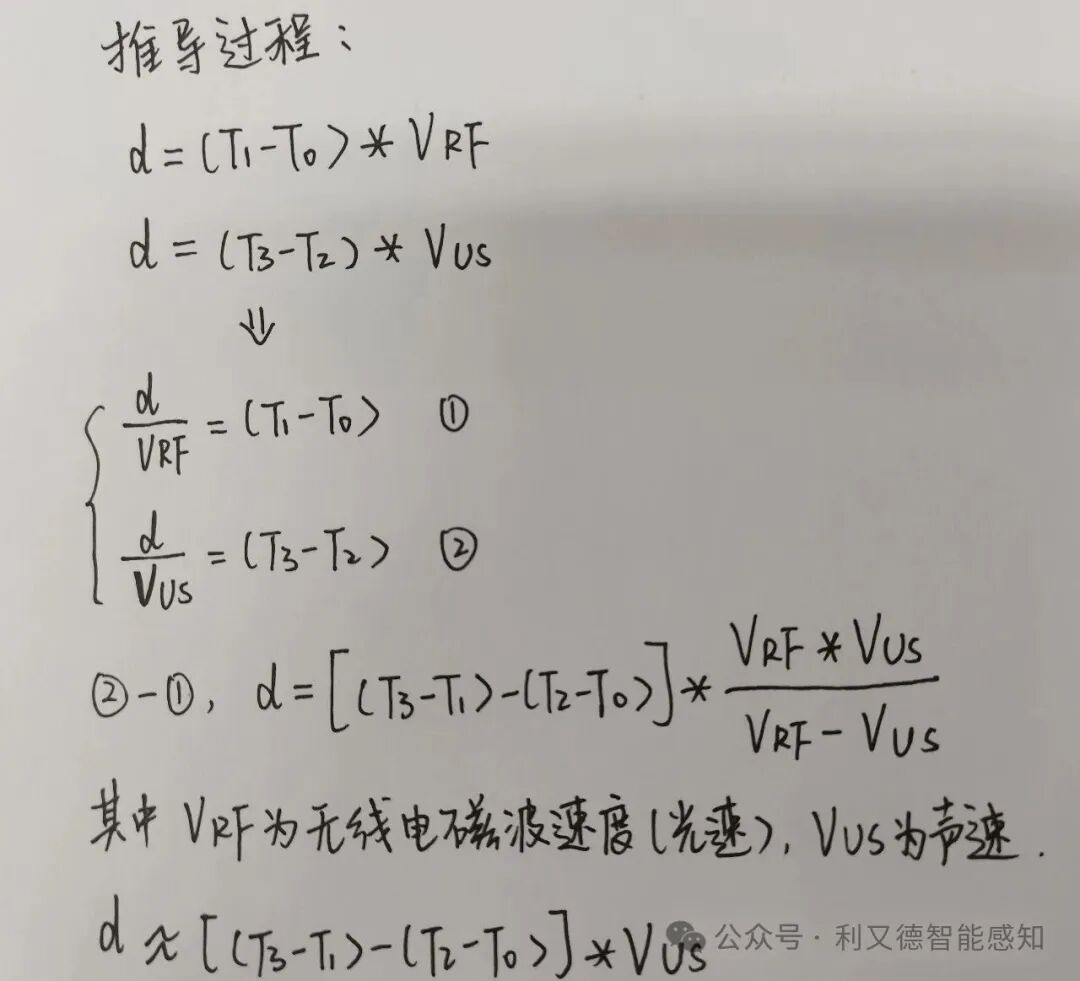 推导过程：
d=(T1-T0)*VRF
d=(T3-T2)*VUS
⇓
d/VRF=(T1-T0) ①
d/VUS=(T3-T2) ②
②-①, d=[(T3-T1)-(T2-T0)]*(VRF*VUS)/(VRF-VUS)
其中VRF为无线电磁波速度(光速), VUS为声速.
d≈[(T3-T1)-(T2-T0)]*VUS
公众号·利又德智能感知